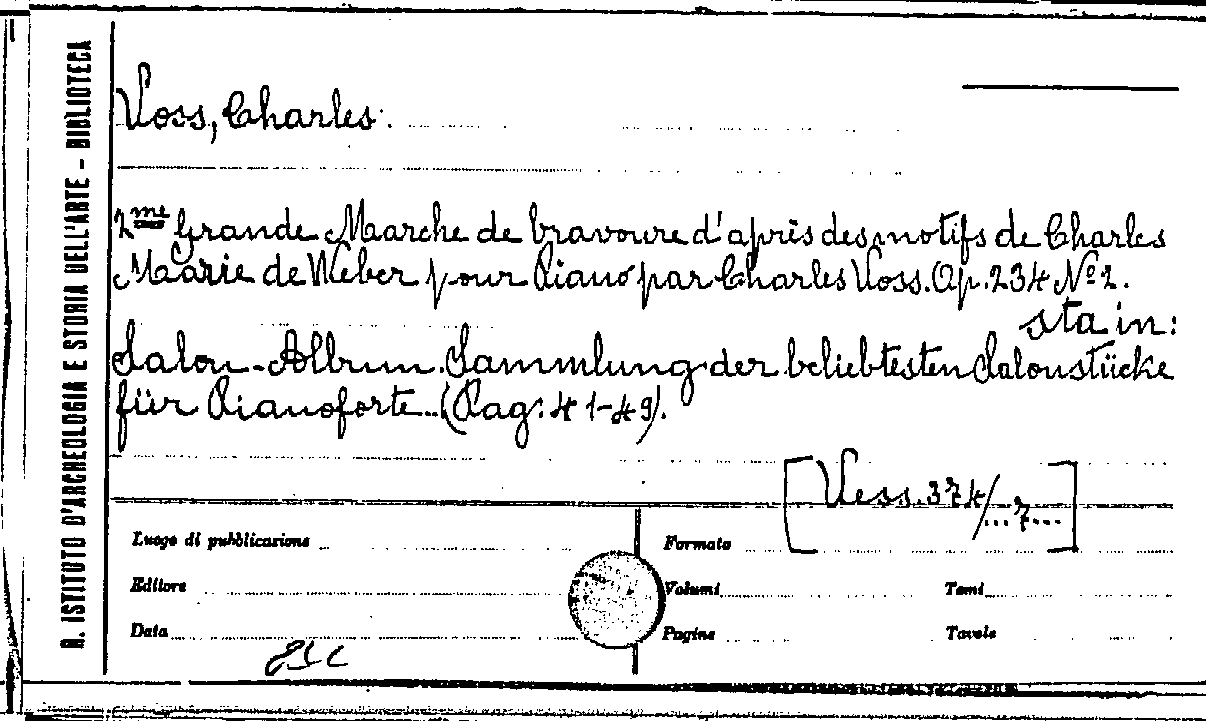 R. ISTITUTO D'ARCHEOLOGIA E STORIA DELL'ARTE - BIBLIOTECA
Voss, Charles.
2me Grande Marche de bravoure d'après des motifs de Charles
Maarie de Weber pour Piano par Charles Voss. Op. 234 No 2.
sta in:
Salon-Album. Sammlung der beliebtesten Salonstücke
für Pianoforte. (Pag: 41-49).
[Vess. 374/...7...]
Luogo di pubblicazione
Formato
Editore
Volumi
Tomi
Data
Pagine
Tavole